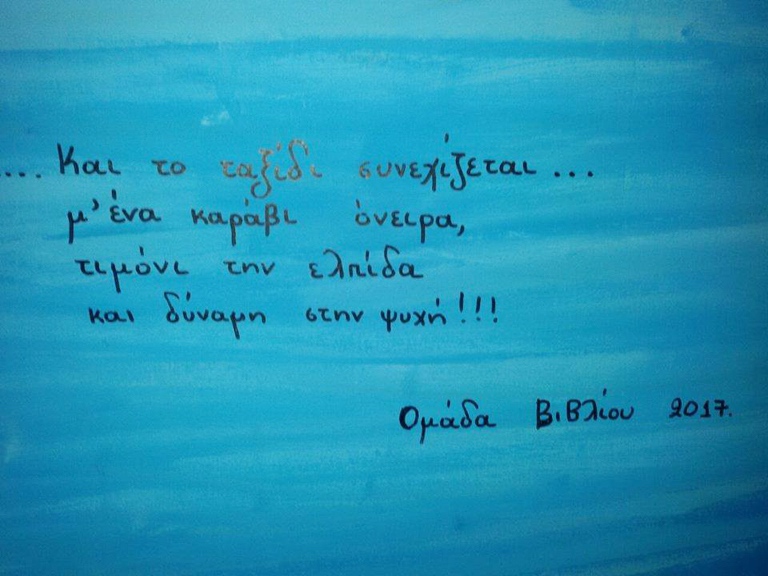 ... Και το ταξίδι συνεχίζεται ...
μ' ένα καράβι όνειρα,
τιμόνι την ελπίδα
και δύναμη στην ψυχή!!!
Ομάδα Βιβλίου 2017.